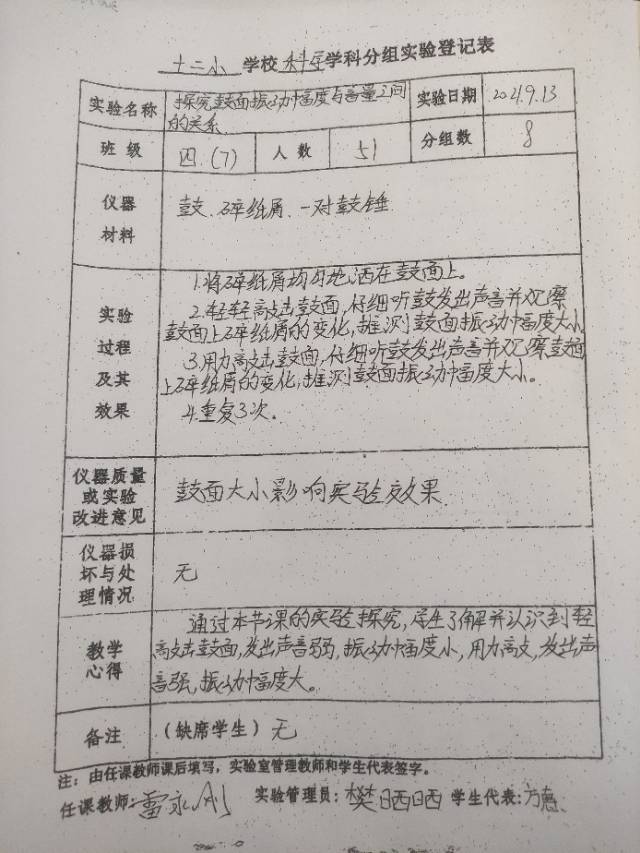 十二小 学校 科学 学科分组实验登记表
实验名称 探究鼓面振动幅度与音量之间的关系 实验日期 2021.9.13
班级 四.(7) 人数 51 分组数 8
仪器材料 鼓、碎纸屑、一对鼓锤
实验过程及其效果
1.将碎纸屑均匀地洒在鼓面上。
2.轻轻敲击鼓面,仔细听鼓发出声音并观察
鼓面上碎纸屑的变化,推测鼓面振动幅度大小
3.用力敲击鼓面,仔细听鼓发出声音并观察鼓面
上碎纸屑的变化,推测鼓面振动幅度大小。
4.重复3次。
仪器质量或实验改进意见 鼓面大小影响实验效果
仪器损坏与处理情况 无
教学心得
通过本节课的实验探究,学生了解并认识到轻
敲击鼓面,发出声音弱,振动幅度小,用力敲,发出声
音强,振动幅度大。
备注 (缺席学生)无
注:由任课教师课后填写,实验室管理教师和学生代表签字。
任课教师:雷永刚 实验管理员:樊晒晒 学生代表:方